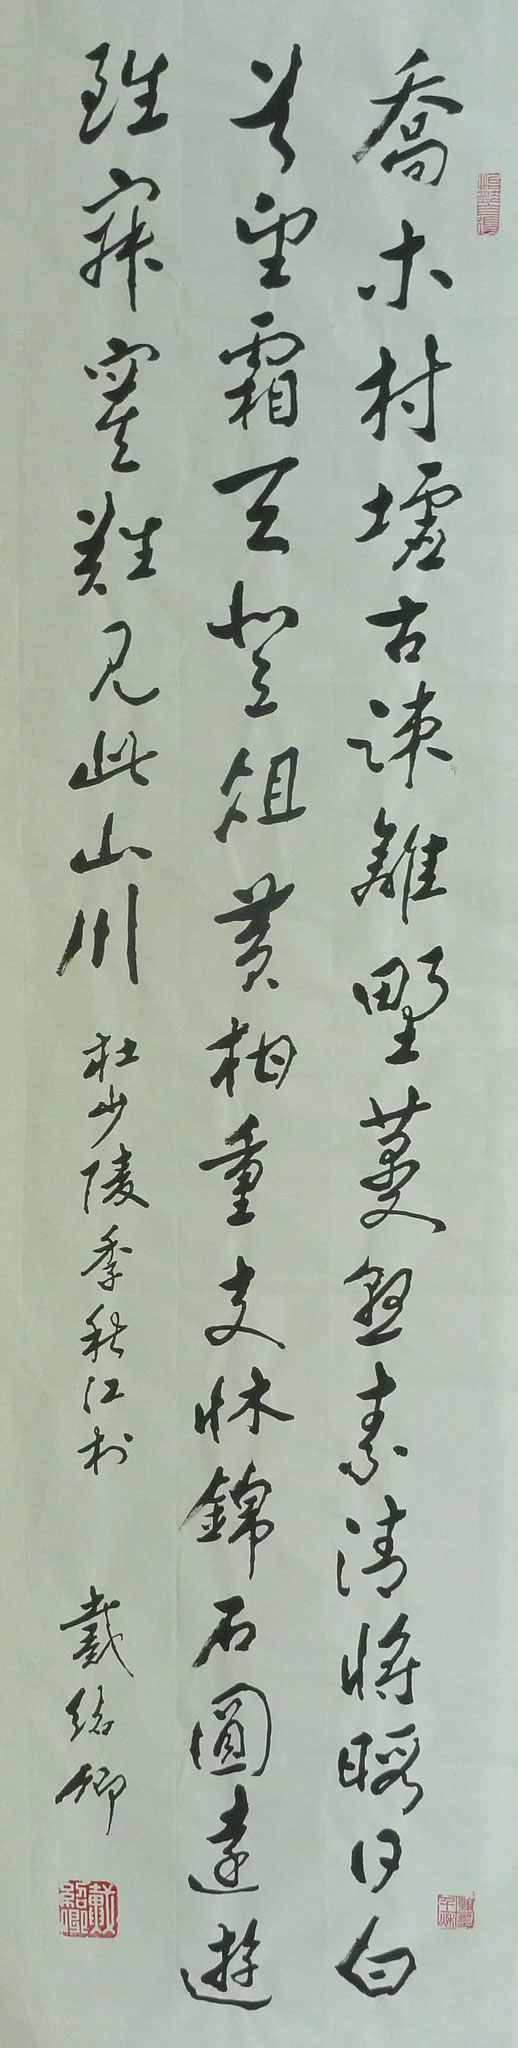 喬木村墟古疎離野蔓懸素清將暇日白
首望霜天登俎黃柑重支牀錦石圓遠遊
雖寂寞難見此山川
杜少陵季秋江村
戴紹卿
戴紹卿